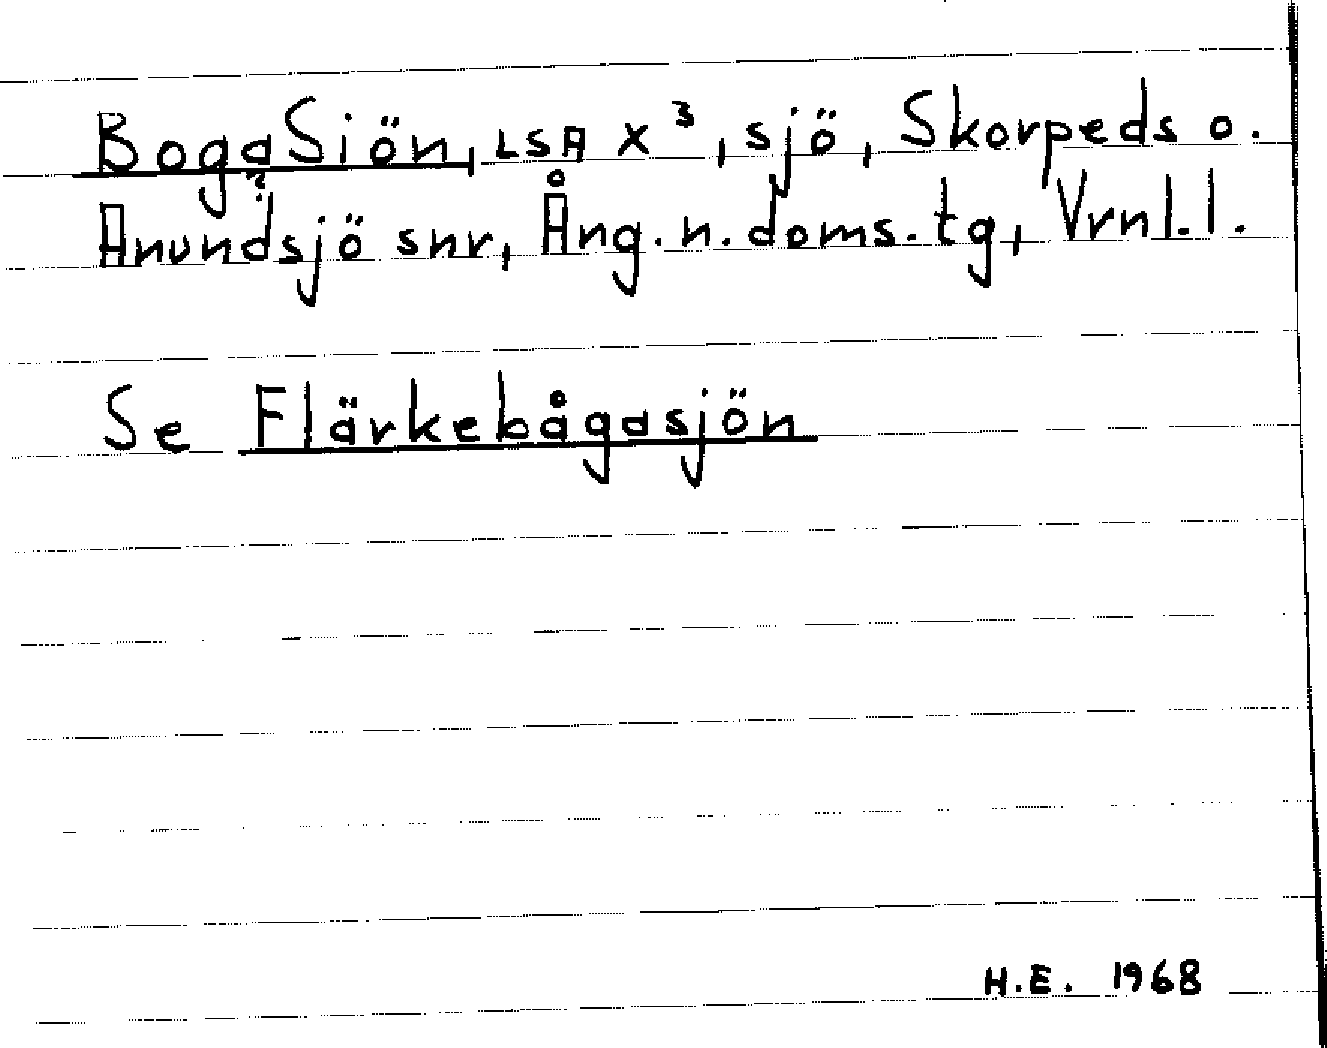 BogaSiön, LSA X³, sjö, Skorpeds o.
?
Anundsjö snr, Ång. n. doms. tg, Vrnl. l.
Se Flärkebågasjön
H.E. 1968